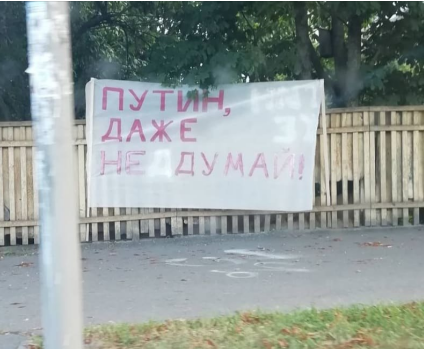 ПУТИН,
ДАЖЕ
НЕ ДУМАЙ!